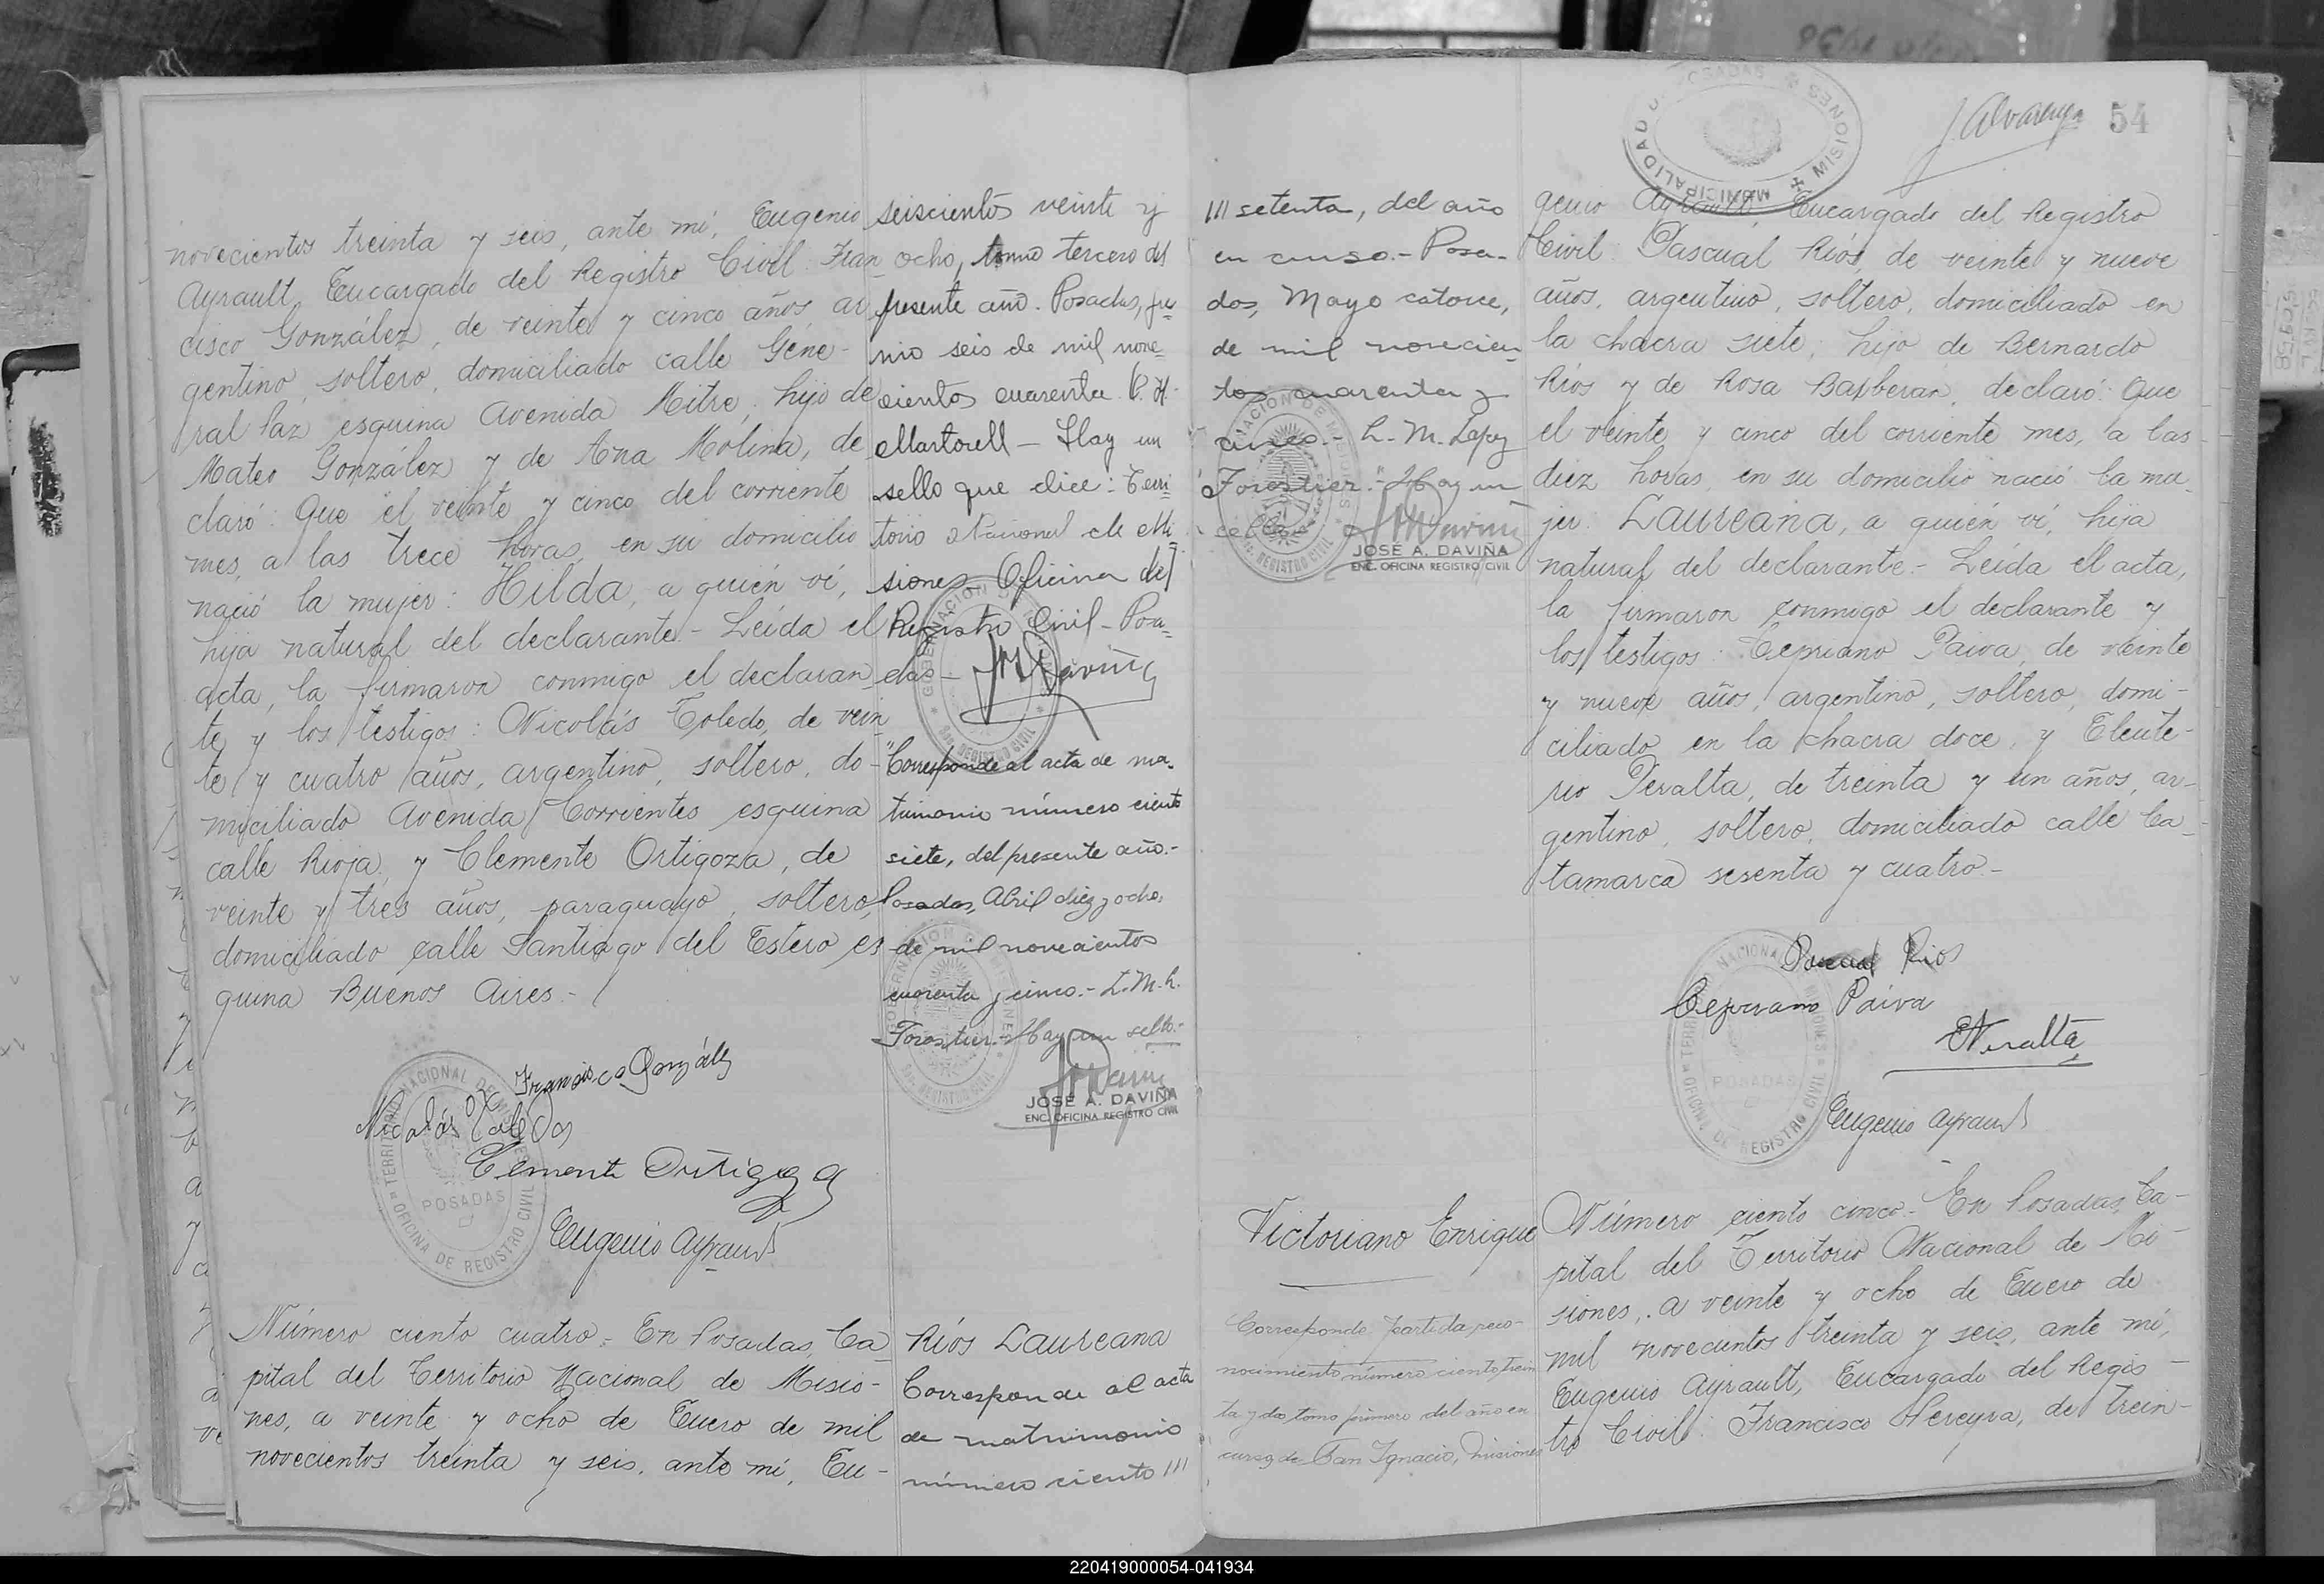 novecientos treinta y seis, ante mí, Eugenio
Ayrault, Encargado del Registro Civil: Fran
cisco González, de veinte y cinco años ar
gentino, soltero, domiciliado calle Géne-
ral Paz esquina Avenida Mitre; hijo de
Mateo González y de Ana Molina, de
claró: Que el veinte y cinco del corriente
mes, a las trece horas, en su domicilio
nació la mujer: Hilda, a quién ví,
hija natural del declarante.- Leída el
acta, la firmaron conmigo el declaran
te y los testigos: Nicolás Toledo, de vein
te y cuatro años, argentino, soltero, do-
miciliado Avenida Corrientes esquina
calle Rioja, y Clemente Ortigoza, de
veinte y tres años, paraguayo, soltero,
domiciliado calle Santiago del Estero es
quina Buenos Aires.-
Francisco González
Nicolás Toledo
Clemente Ortigoza
Eugenio Ayrault
TERRITORIO NACIONAL DE MISIONES
POSADAS
OFICINA DE REGISTRO CIVIL
Número ciento cuatro.- En Posadas, Ca-
pital del Territorio Nacional de Misio-
nes, a veinte y ocho de Enero de mil
novecientos treinta y seis, ante mí, Eu-
seiscientos veinte y
ocho, tomo tercero del
presente año. Posadas, ju
nio seis de mil nove-
cientos cuarenta. P. H.
Martorell - Hay un
sello que dice: Terri
torio Nacional de Mi-
siones Oficina del
Registro Civil - Posa-
das -
"Corresponde al acta de ma-
trimonio número ciento
siete, del presente año.-
Posadas, Abril diez y ocho,
de mil novecientos
cuarenta y cinco.- L. M. L.
Forastier.- Hay un sello.-
JOSÉ A. DAVIÑA
ENC. OFICINA REGISTRO CIVIL
Ríos Laureana
Corresponde al acta
de matrimonio
número ciento ///
J. Alvarenga 54
MUNICIPALIDAD POSADAS MISIONES
/// setenta, del año
en curso.- Posa-
das, Mayo catorce,
de mil novecien-
tos cuarenta y
cinco.- L. M. Lopez
Forastier.- Hay un
sello.-
JOSÉ A. DAVIÑA
ENC. OFICINA REGISTRO CIVIL
genio Ayrault, Encargado del Registro
Civil: Pascual Ríos, de veinte y nueve
años, argentino, soltero, domiciliado en
la chacra siete; hijo de Bernardo
Ríos y de Rosa Barberan, declaró: Que
el veinte y cinco del corriente mes, a las
diez horas, en su domicilio nació la mu-
jer: Laureana, a quién ví, hija
natural del declarante.- Leída el acta,
la firmaron conmigo el declarante y
los testigos: Cepriano Paiva, de veinte
y nueve años, argentino, soltero, domi-
ciliado en la chacra doce, y Eleute-
rio Peralta, de treinta y un años, ar-
gentino, soltero, domiciliado calle Ca-
tamarca sesenta y cuatro.-
Pascual Rios
Cepriano Paiva
E Peralta
Eugenio Ayrault
TERRITORIO NACIONAL DE MISIONES
POSADAS
OFICINA DE REGISTRO CIVIL
Victoriano Enrique
Corresponde partida reco-
nocimiento número ciento trein
ta y dos, tomo primero del año en
curso, de San Ignacio, Misiones
Número ciento cinco.- En Posadas, Ca-
pital del Territorio Nacional de Mi-
siones, a veinte y ocho de Enero de
mil novecientos treinta y seis, ante mí,
Eugenio Ayrault, Encargado del Regis-
tro Civil: Francisco Pereyra, de trein-
220419000054-041934